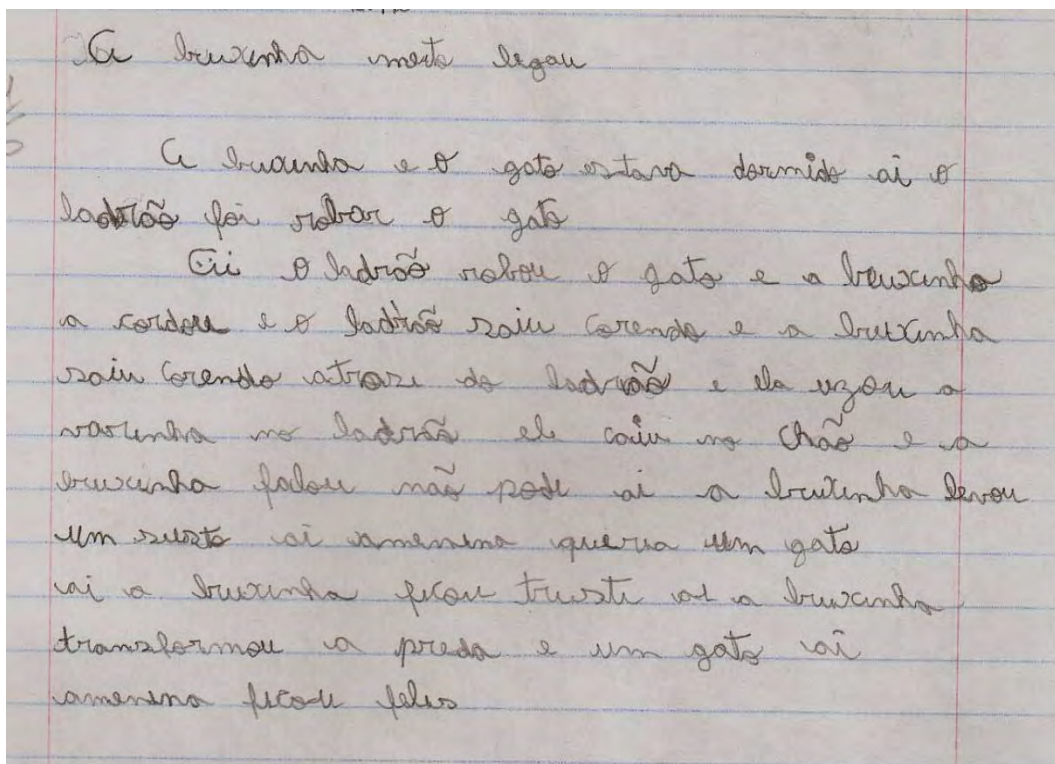 A bruxinha muito legau
A bruxinha e o gato estava dormido ai o
ladrão foi robar o gato
Ai o ladrão robou o gato e a bruxinha
a cordou e o ladrão saiu corendo e a bruxinha
saiu corendo atrasi do ladrão e ela uzou a
varinha no ladrão ele caiu no chão e a
bruxinha falou não pode ai a bruxinha levou
um susto ai amenina queria um gato
ai a bruxinha ficou triste ai a bruxinha
transformou a preda e um gato ai
amenina ficou felis